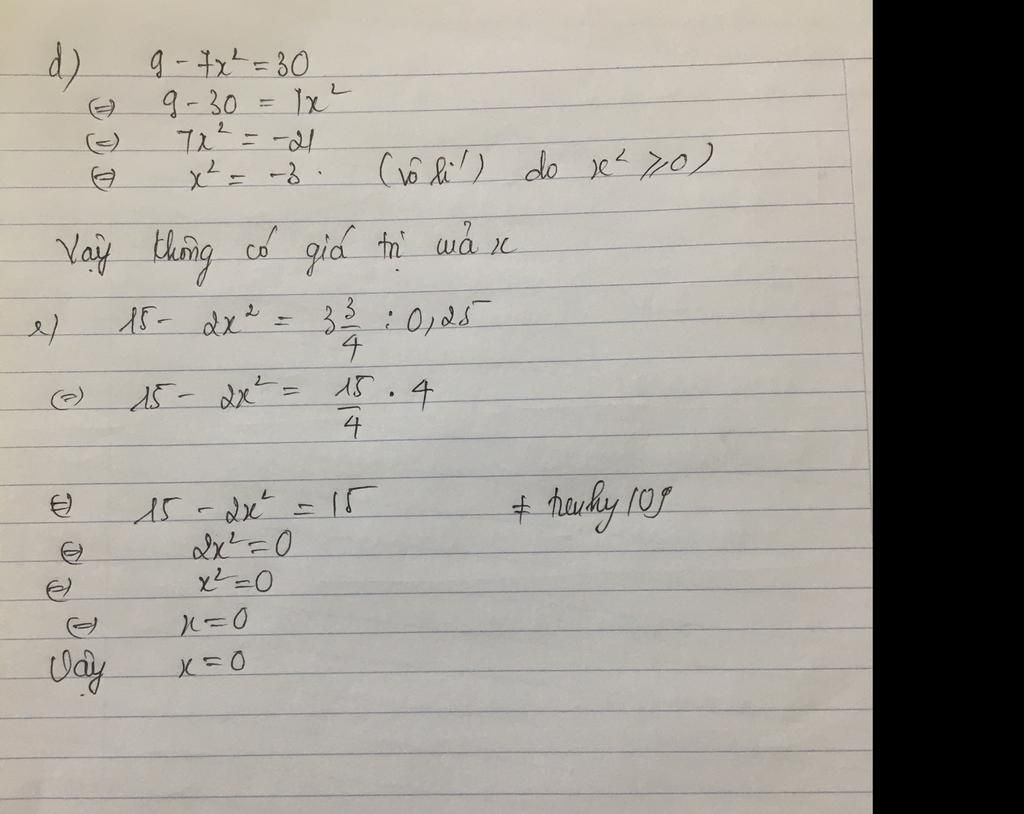 d) 9 - 7x² = 30
⇔ 9 - 30 = 7x²
⇔ 7x² = -21
⇔ x² = -3. (vô lí) do x² ⩾ 0)
Vậy không có giá trị của x
e) 15 - 2x² = 3 3/4 : 0,25
⇔ 15 - 2x² = 15/4 . 4
⇔ 15 - 2x² = 15 ≠
⇔ 2x² = 0
⇔ x² = 0
⇔ x = 0
Vậy x = 0